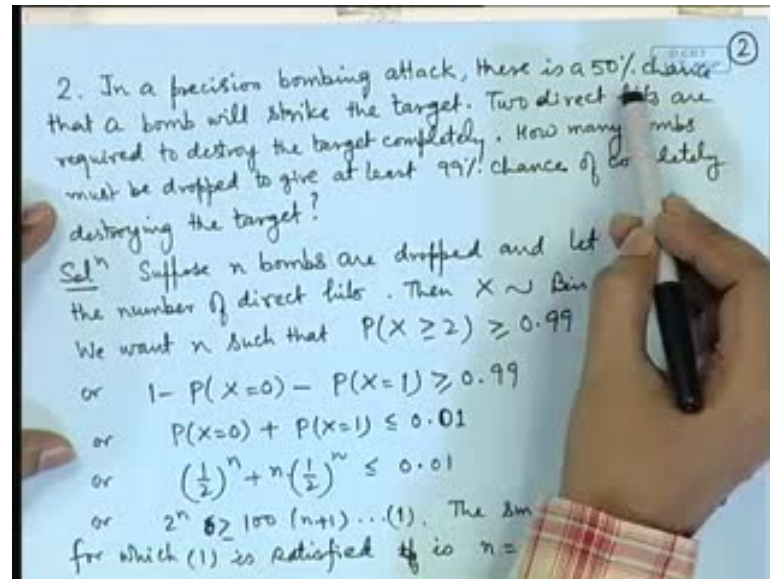 2
2. In a precision bombing attack, there is a 50% chance
that a bomb will strike the target. Two direct hits are
required to destroy the target completely. How many
must be dropped to give at least 99% chance of
destroying the target?
Solⁿ Suppose n bombs are dropped and let
the number of direct hits. Then X ~ Bin
We want n such that P(X ≥ 2) ≥ 0.99
or 1 - P(X=0) - P(X=1) ≥ 0.99
or P(X=0) + P(X=1) ≤ 0.01
or (1/2)ⁿ + n(1/2)ⁿ ≤ 0.01
or 2ⁿ ≥ 100 (n+1) ...(1). The
for which (1) is satisfied is n =